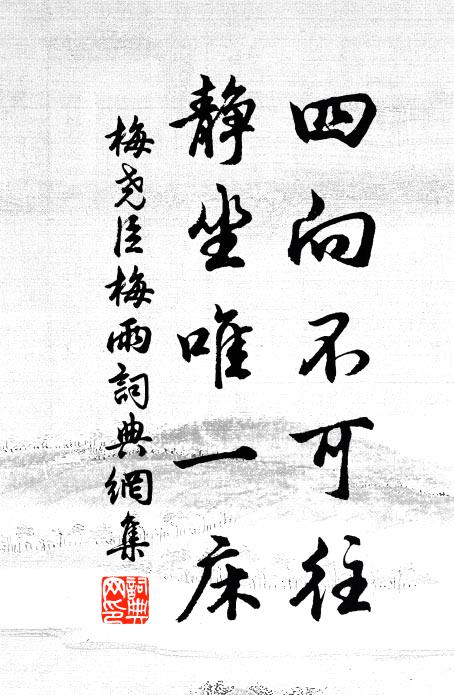 四向不可往
靜坐唯一床
梅堯臣梅雨詞典網集
詞典网印